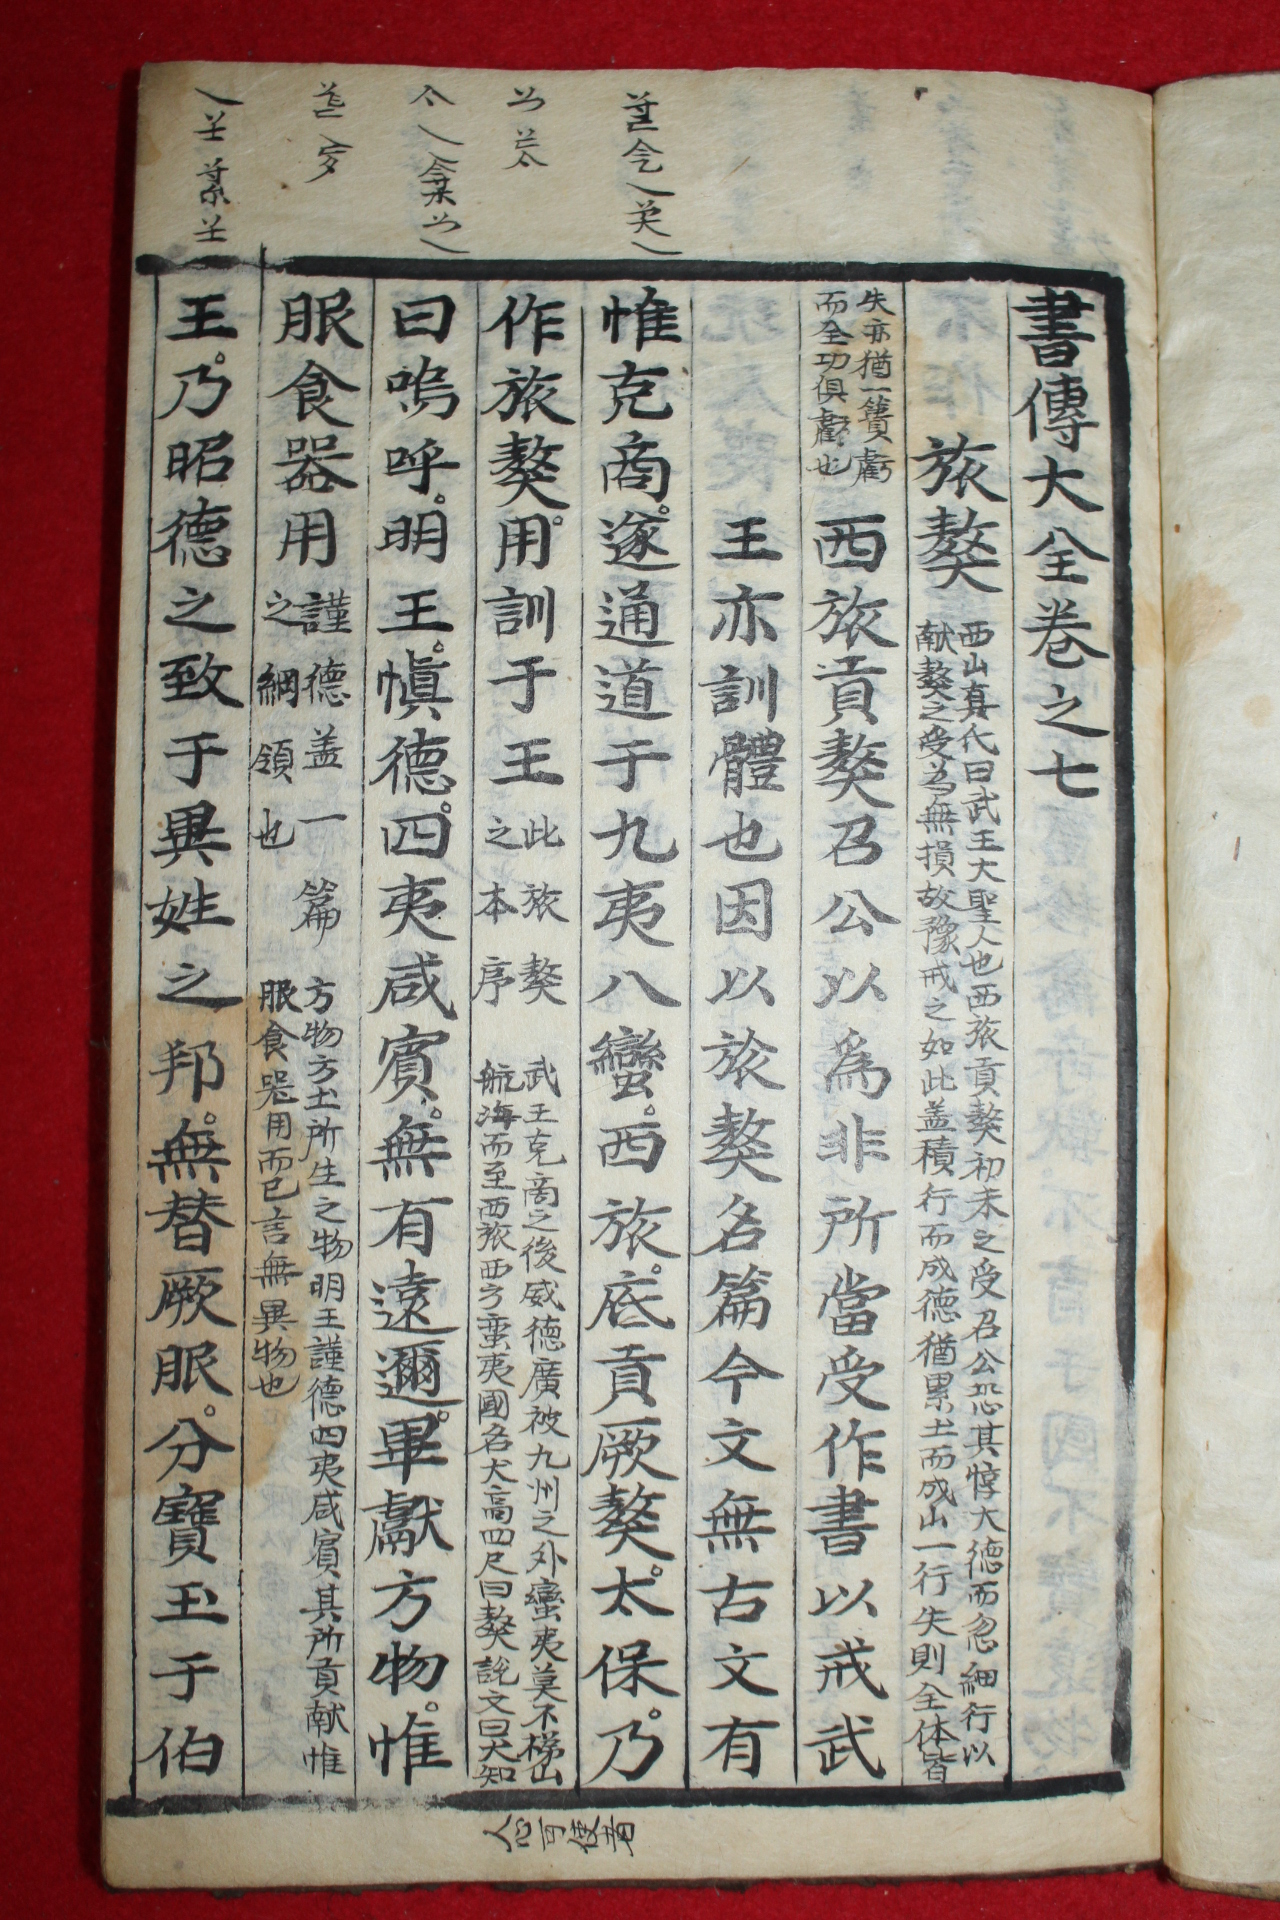 書傳大全卷之七
旅獒
西山真氏曰武王大聖人也西旅貢獒初未之受召公恐其悖大德而忽細行以
献獒之受為無損故豫戒之如此盖積行而成德猶累土而成山一行失則全体皆
失亦猶一簣虧
而全功俱虧也
西旅貢獒召公以爲非所當受作書以戒武
王亦訓體也因以旅獒名篇今文無古文有
惟克商。遂通道于九夷八蠻。西旅。底貢厥獒。太保。乃
作旅獒。用訓于王
此旅獒
之本序
武王克商之後威德廣被九州之外蠻夷莫不梯山
航海而至西旅西方蛮夷國名犬高四尺曰獒說文曰犬知
人心可使者
曰嗚呼。明王。愼德。四夷咸賓。無有遠邇。畢獻方物。惟
服食器用
謹德盖一篇
之綱領也
方物方土所生之物明王謹德四夷咸賓其所貢献惟
服食器用而已言無異物也
王。乃昭德之致于異姓之邦。無替厥服。分寶玉于伯